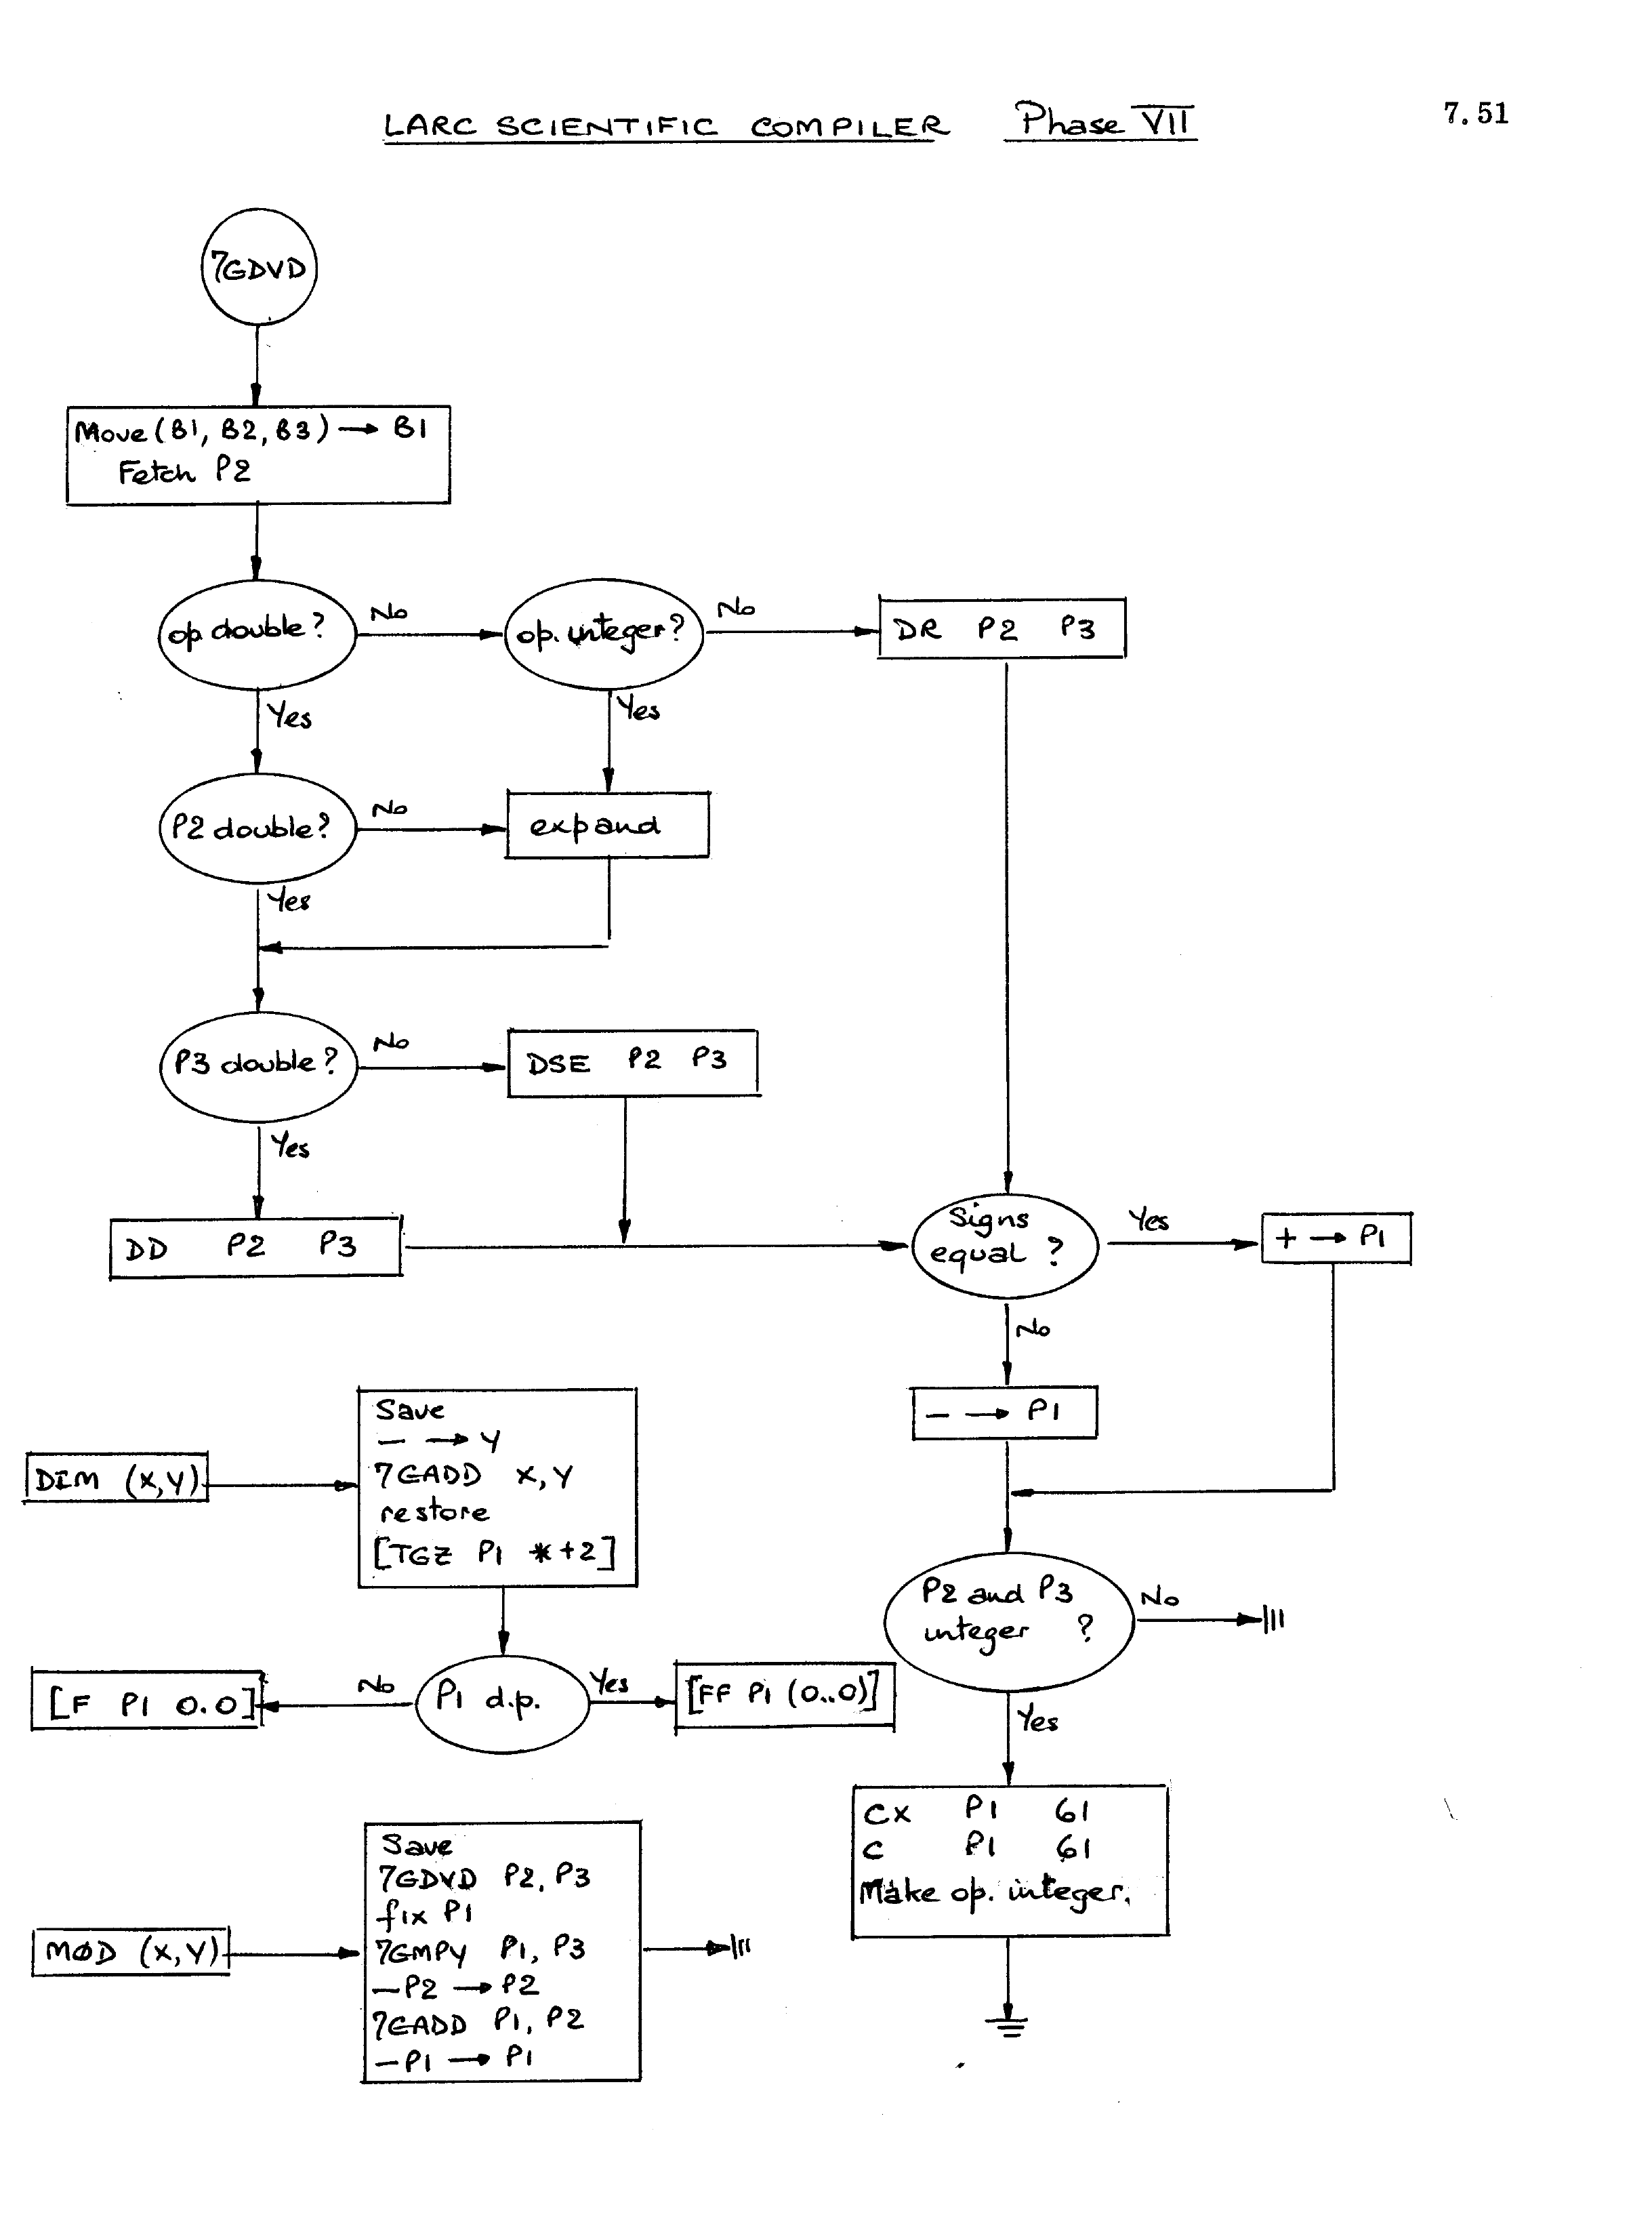 LARC SCIENTIFIC COMPILER Phase VII
7.51
7GDVD
Move (B1, B2, B3) → B1
Fetch P2
op. double?
No
op. integer?
No
DR P2 P3
Yes
Yes
P2 double?
No
expand
Yes
P3 double?
No
DSE P2 P3
Yes
DD P2 P3
Signs
equal ?
Yes
+ → P1
No
− → P1
DIM (X,Y)
Save
− → Y
7GADD X,Y
restore
[TGZ P1 *+2]
P2 and P3
integer ?
No
[F P1 0.0]
No
P1 d.p.
Yes
[FF P1 (0..0)]
Yes
CX P1 61
C P1 61
Make op. integer.
MØD (X,Y)
Save
7GDVD P2, P3
fix P1
7GMPY P1, P3
−P2 → P2
7GADD P1, P2
−P1 → P1